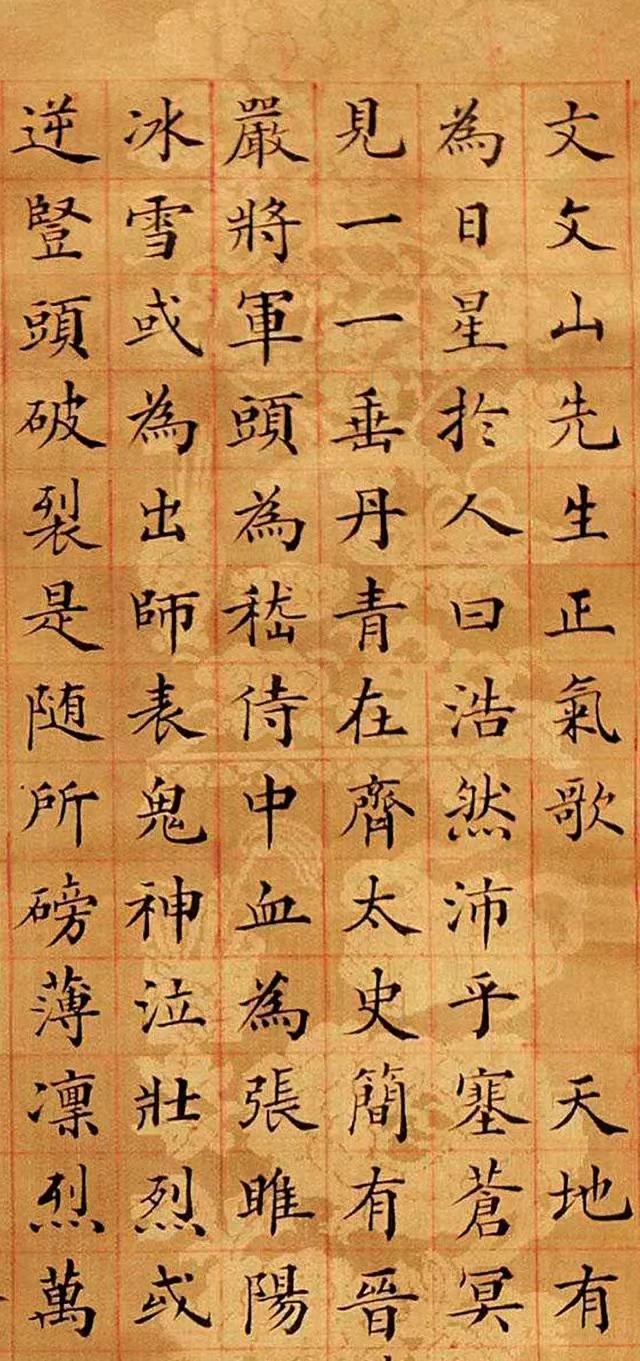 文文山先生正氣歌　天地有
為日星扵人曰浩然沛乎塞蒼冥
見一一垂丹青在齊太史簡有晉
嚴將軍頭為嵇侍中血為張睢陽
冰雪或為出師表鬼神泣壯烈或
逆豎頭破裂是随所磅薄凛烈萬